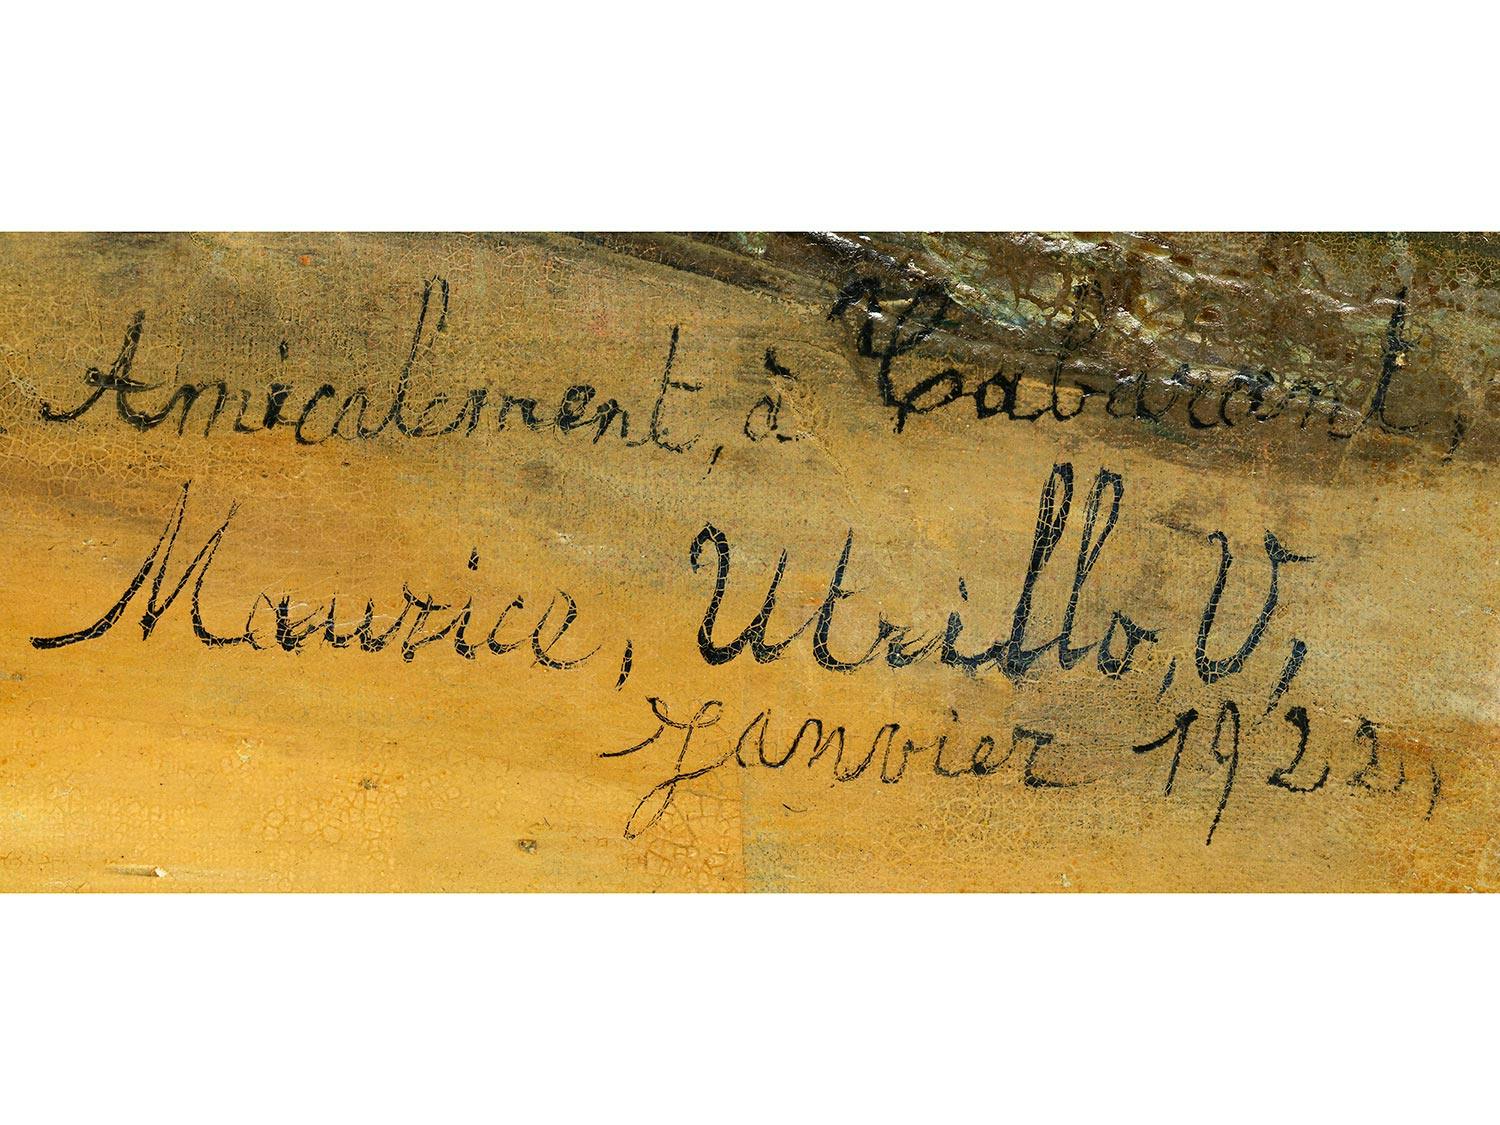 Amicalement, à Tabarant,
Maurice, Utrillo, V,
Janvier 1922,